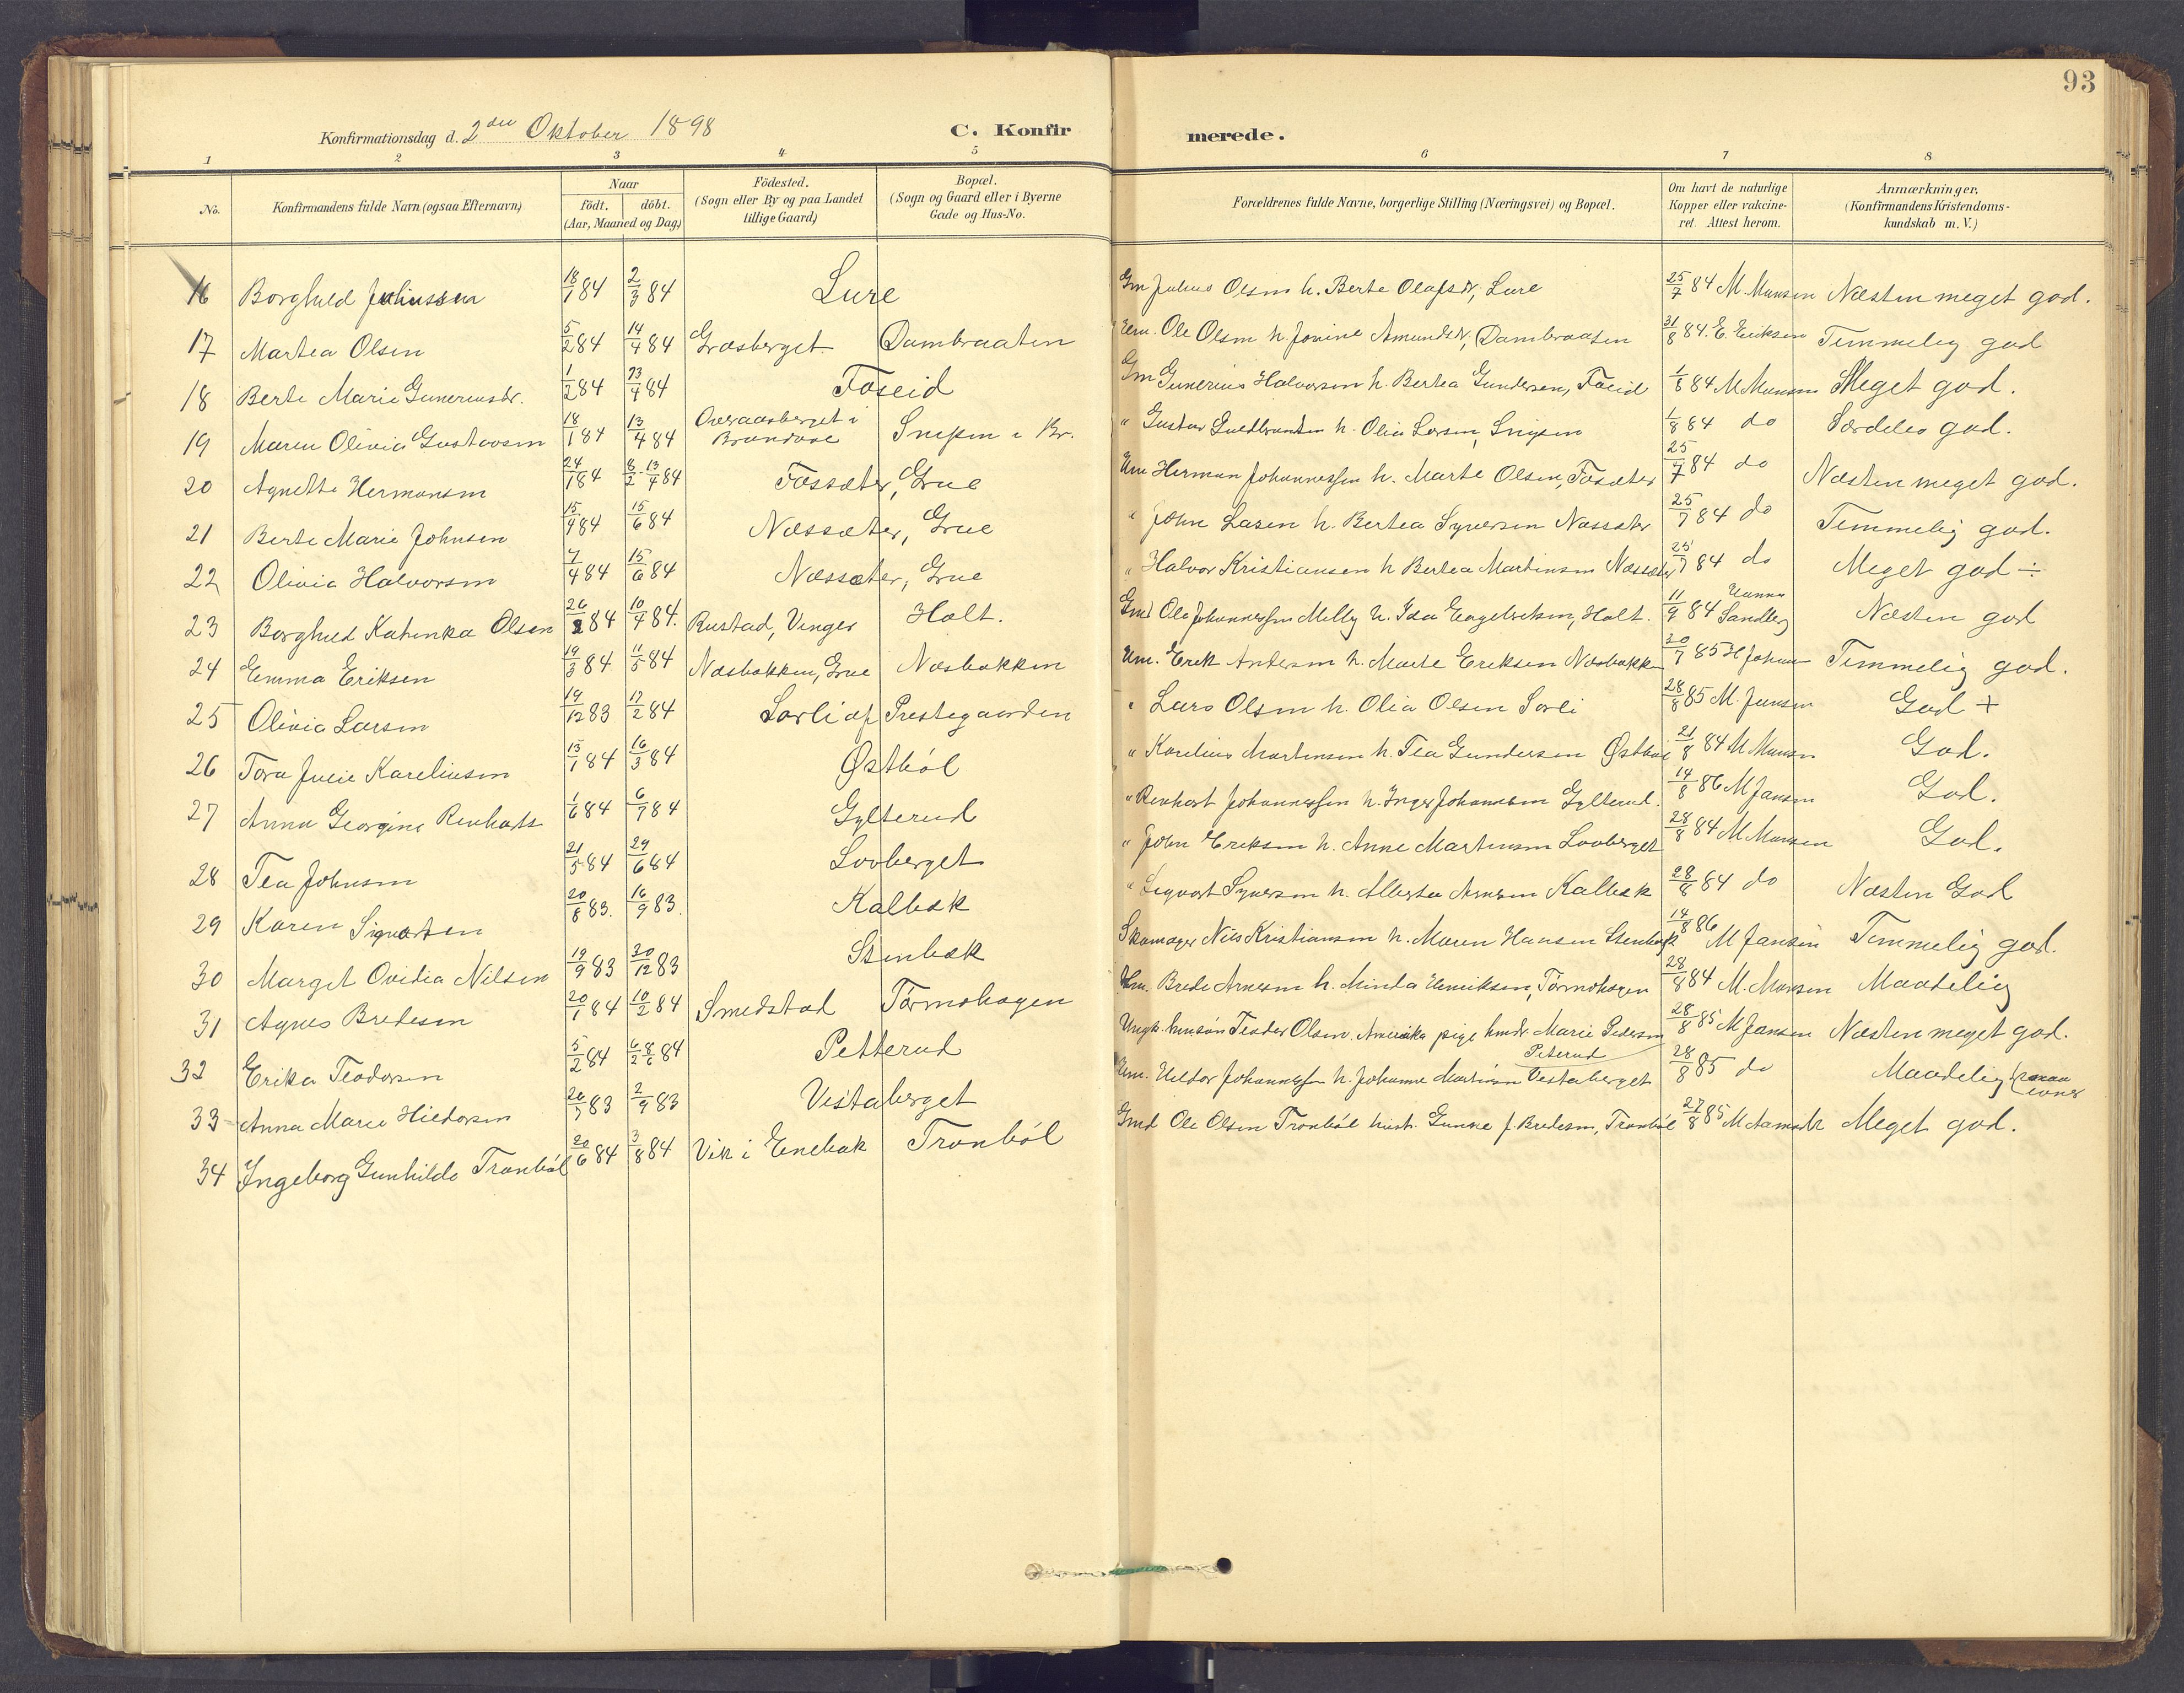 93
Konfirmationsdag d. 2den Oktober 1898 C. Konfirmerede.
1 2 3 4 5 6 7 8
No. Konfirmandens fulde Navn (ogsaa Efternavn) Naar födt. döbt. (Aar, Maaned og Dag) Födested. (Sogn eller By og paa Landet tillige Gaard) Bopæl. (Sogn og Gaard eller i Byerne Gade og Hus-No. Forældrenes fulde Navne, borgerlige Stilling (Næringsvei) og Bopæl. Om havt de naturlige Kopper eller vakcineret. Attest herom. Anmærkninger. (Konfirmandens Kristendomskundskab m. V.)
16 Borghild Juliussen 18/1 84 2/3 84 Lure Gm Julius Olsen h. Berte Olafsdr, Lure 25/7 84 M. Munsen Næsten meget god.
17 Martea Olsen 5/2 84 14/4 84 Græsberget Dambraaten Em. Ole Olsen h. Jovine Amundsdr, Dambraaten 31/8 84. E. Eriksen Temmelig god
18 Berte Marie Guneriusdr. 1/2 84 23/4 84 Foseid Gm Gunerius Halvorsen h. Bertea Gundersen, Foseid 1/8 84 M Munsen Meget god.
19 Maren Olivia Gustavsen 18/1 84 13/4 84 Overaasberget i Brandval Snipen i Br. " Gustav Guldbrandsen h. Olia Larsen, Snipen 1/8 84 do Særdeles god.
20 Agnette Hermansen 24/1 84 8/2 - 13/4 84 Fossæter, Grue Em Herman Johannessen h. Marte Olsen, Fossæter 25/7 84 do Næsten meget god.
21 Berte Marie Johnsen 15/4 84 15/6 84 Næssæter, Grue " John Larsen h. Bertea Syversen Næssæter 25/7 84 do Temmelig god.
22 Olivia Halvorsen 7/4 84 15/6 84 Næssæter, Grue " Halvor Kristiansen h Bertea Martinsen Næssæter 25/7 84 do Meget god ÷
23 Borghild Katinka Olsen 26/2 84 10/4 84. Rustad, Vinger Holt. Gmd Ole Johannessen Melby h. Ida Engebretsen, Holt. 11/9 84 Hanna Sandberg Næsten god
24 Emma Eriksen 19/3 84 11/5 84 Næsbakken, Grue Næsbakken Em. Erik Andersen h. Marte Eriksen Næsbakken 30/7 85 H Johnsen Temmelig god.
25 Olivia Larsen 19/12 83 17/2 84 Sørli af Prestegaarden " Lars Olsen h. Olia Olsen Sørli 28/8 85 M. Jansen God +
26 Tora Julie Kareliusen 15/1 84 16/3 84 Østböl " Karelius Martinsen h. Tea Gundersen Østböl 21/8 84 M Munsen God.
27 Anna Georgine Renharts 1/6 84 6/7 84 Gylterud " Renhart Johannessen h. Inger Johannesen Gylterud. 14/8 86 M Jansen God.
28 Tea Johnsen 21/5 84 29/6 84 Lovberget " John Eriksen h. Anne Martinsen Lovberget 28/8 84 M Munsen God.
29 Karen Sigvartsen 20/8 83. 16/9 83. Kalbæk " Sigvart Syversen h. Alberta Arnesen Kalbæk 28/8 84 do Næsten God
30 Marget Ovidia Nilsen 19/9 83 30/12 83 Stenbæk Skomager Nils Kristiansen h. Maren Hansen Stenbæk 14/8 86 M Jansen Temmelig god.
31 Agnes Bredesen 20/1 84 10/2 84 Smedstad Tormohagen Em. Brede Arnesen h. Minda Henriksen, Tormohagen 28/8 84 M. Munsen Maadelig
32 Erika Teodorsen 5/2 84 6/2 8/6 84 Petterud Ungk. hmsön Teodor Olsen Amerika pige hmdr. Marie Pedersen Peterud 28/8 85 M Jansen Næsten meget god.
33 Anna Marie Hildorsen 26/7 83 2/9 83 Vestaberget Em. Heldor Johannessen h. Johanne Martinsen Vestaberget 28/8 85 do Maadelig
34 Ingeborg Gunhilde Tronböl 20/6 84 3/8 84 Vik i Enebak Tronböl Gmd Ole Olsen Tronböl hust. Gunne J. Bredesen, Tronböl 27/8 85 Meget god.